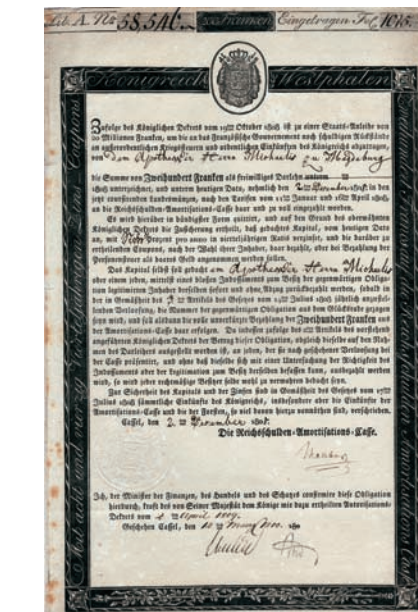 Lit. A. No 58,546. 200 Franken Eingetragen Fol. 1045.
Koenigreich Westphalen
Zufolge des Königlichen Dekrets vom 19ten Oktober 1808 ist zu einer Staats-Anleihe von
20 Millionen Franken, um die an das Französische Gouvernement noch schuldigen Rückstände
an außerordentlichen Kriegssteuern und ordentlichen Einkünften des Königreichs abzutragen,
von dem Apotheker Herrn Michaelis zu Magdeburg
die Summe von Zweihundert Franken als freiwilliges Darlehn
1808 unterzeichnet, und unterm heutigen Dato, nehmlich den 2ten December 1808 in den
jetzt coursirenden Landesmünzen, nach den Tarifen vom 11ten Januar und 16ten April 1808,
an die Reichsschulden-Amortisations-Casse baar und zu voll eingezahlt worden.
Es wird hierüber in bündigster Form quittirt, und auf den Grund des oberwähnten
Königlichen Dekrets die Zusicherung ertheilt, daß gedachtes Kapital, vom heutigen Dato
an, mit Procent pro anno in vierteljährigen Ratis verzinset, und die darüber zu
ertheilenden Coupons, nach der Wahl ihrer Inhaber, baar bezahlt, oder bei Bezahlung der
Personensteuer als baares Geld angenommen werden sollen.
Das Kapital selbst soll gedacht em Apotheker Herrn Michaelis
oder einem jeden, mittelst eines solchen Indossaments zum Besitz der gegenwärtigen Obligation
legitimirten Inhaber derselben sofort und ohne Abzug zurückbezahlt werden, sobald in
der in Gemäßheit des Artikels des Gesetzes vom 14ten Julius 1808 jährlich anzustellenden
Verloosung, die Nummer der gegenwärtigen Obligation aus dem Glücksrade gezogen
seyn wird, und soll alsdann die volle unverkürzte Bezahlung der Zweihundert Franken aus
der Amortisations-Casse baar erfolgen. Da indessen zufolge des Artikels des vorstehend
angeführten Königlichen Dekrets der Betrag dieser Obligation, obgleich dieselbe auf den Namen
des Darleihers ausgestellt worden ist, an jeden, der sie nach geschehener Verloosung bei
der Casse präsentirt, und ohne daß dieselbe sich mit einer Untersuchung der Richtigkeit des
Indossaments oder der Legitimation zum Besitz derselben befassen kann, ausbezahlt werden
wird, so wird jeder rechtmäßige Besitzer selbe wohl zu verwahren bedacht seyn.
Zur Sicherheit des Kapitals und der Zinsen sind in Gemäßheit des Gesetzes vom
Julius 1808 sämmtliche Einkünfte des Königreichs, insbesondere aber die Einkünfte der
Amortisations-Casse und die der Forsten, so viel davon hierzu vonnöthen sind, verschrieben.
Cassel, den 2. ten December 1808.
Die Reichsschulden-Amortisations-Casse.
Ich, der Minister der Finanzen, des Handels und des Schatzes confirmire diese Obligation
hierdurch, kraft des von Seiner Majestät dem Könige mir dazu ertheilten Autorisations-
Dekrets vom ten April 1809.
Geschehen Cassel, den 10 ten
Mit acht und vierzig Coupons